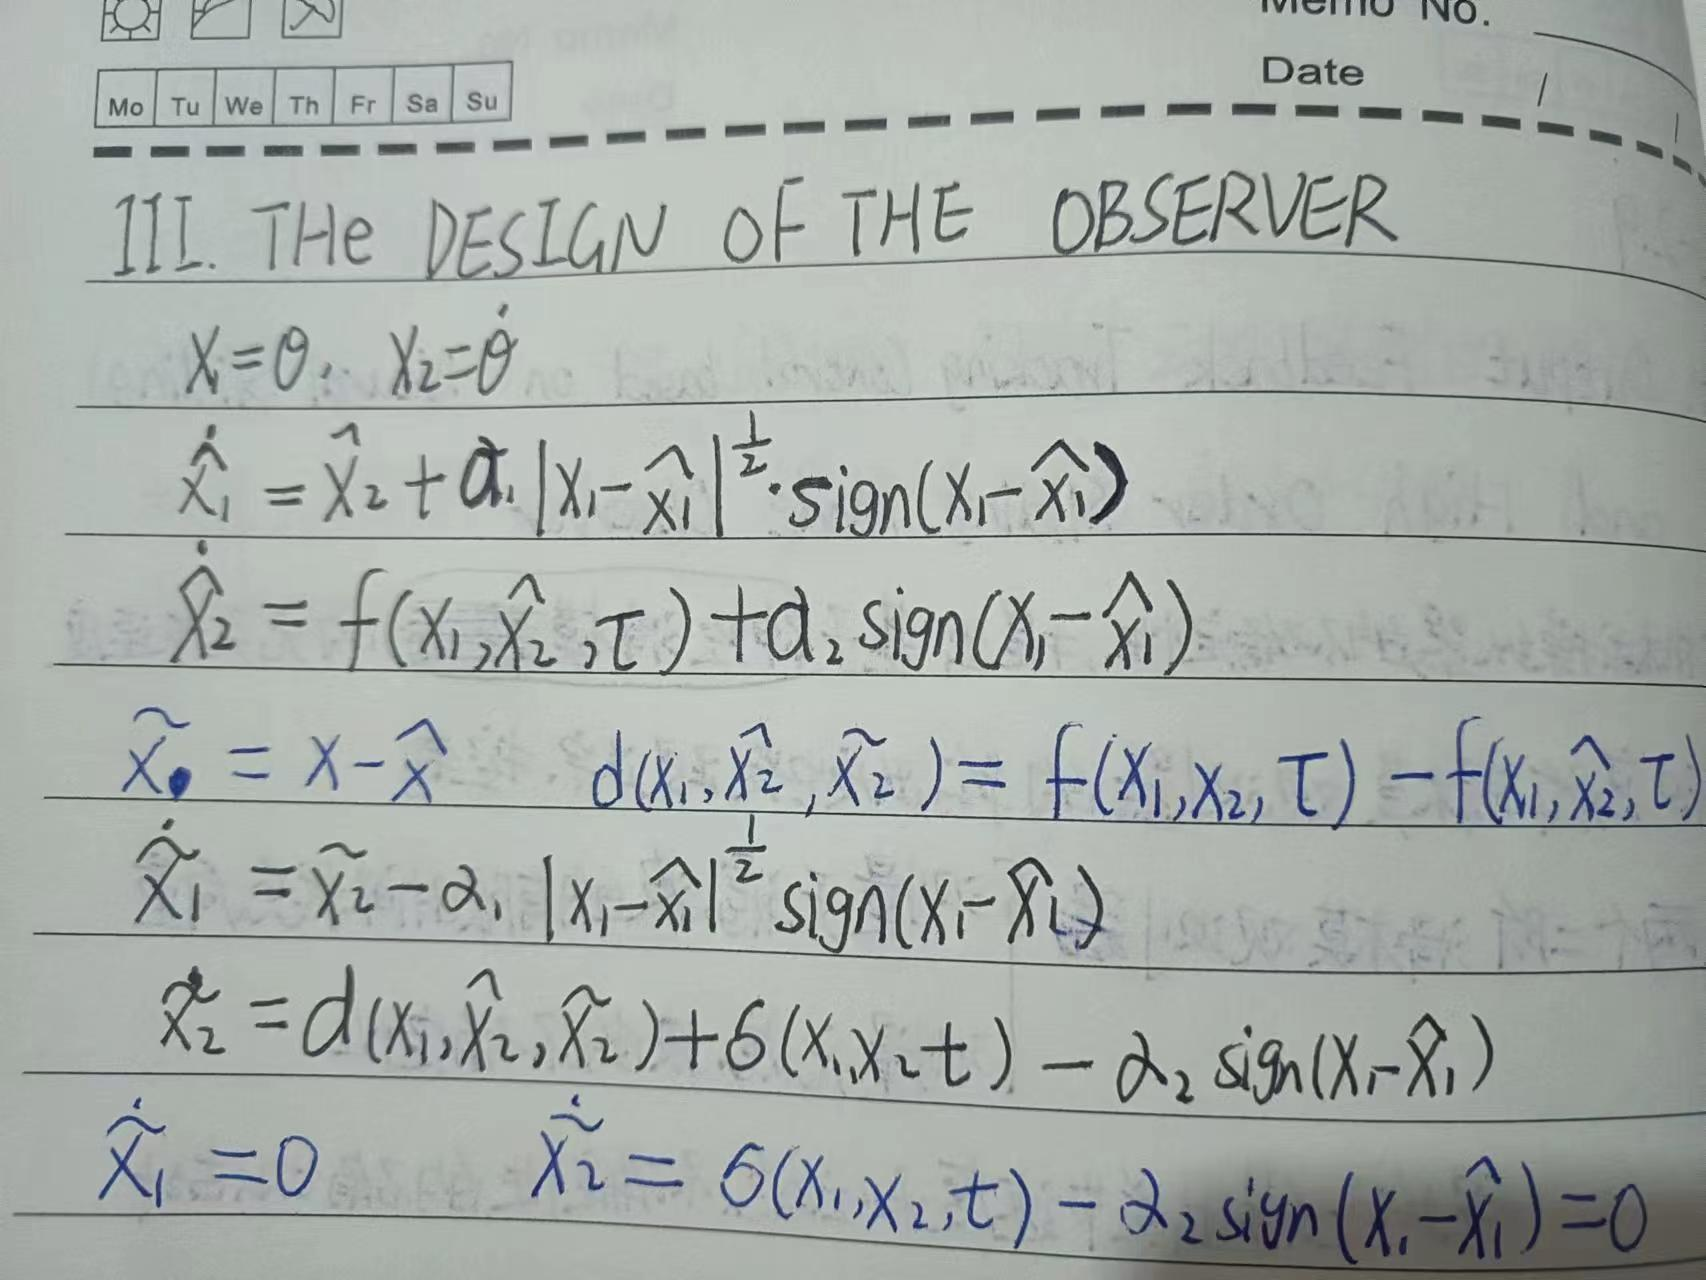 Memo No.
Date / /
Mo Tu We Th Fr Sa Su
III. THe DESIGN OF THE OBSERVER
x₁=θ, x₂=θ̇
x̂̇₁ = x̂₂ + α₁|x₁-x̂₁|^½·sign(x₁-x̂₁)
x̂̇₂ = f(x₁,x̂₂,τ)+α₂sign(x₁-x̂₁)
x̃ = x-x̂ d(x₁,x̂₂,x̃₂) = f(x₁,x₂,τ) - f(x₁,x̂₂,τ)
x̃̇₁ = x̃₂-α₁|x₁-x̂₁|^½ sign(x₁-x̂₁)
x̃̇₂ = d(x₁,x̂₂,x̃₂)+δ(x₁,x₂t) - α₂sign(x₁-x̂₁)
x̃̇₁ = 0 x̃̇₂ = δ(x₁,x₂,t) - α₂sign(x₁-x̂₁)=0